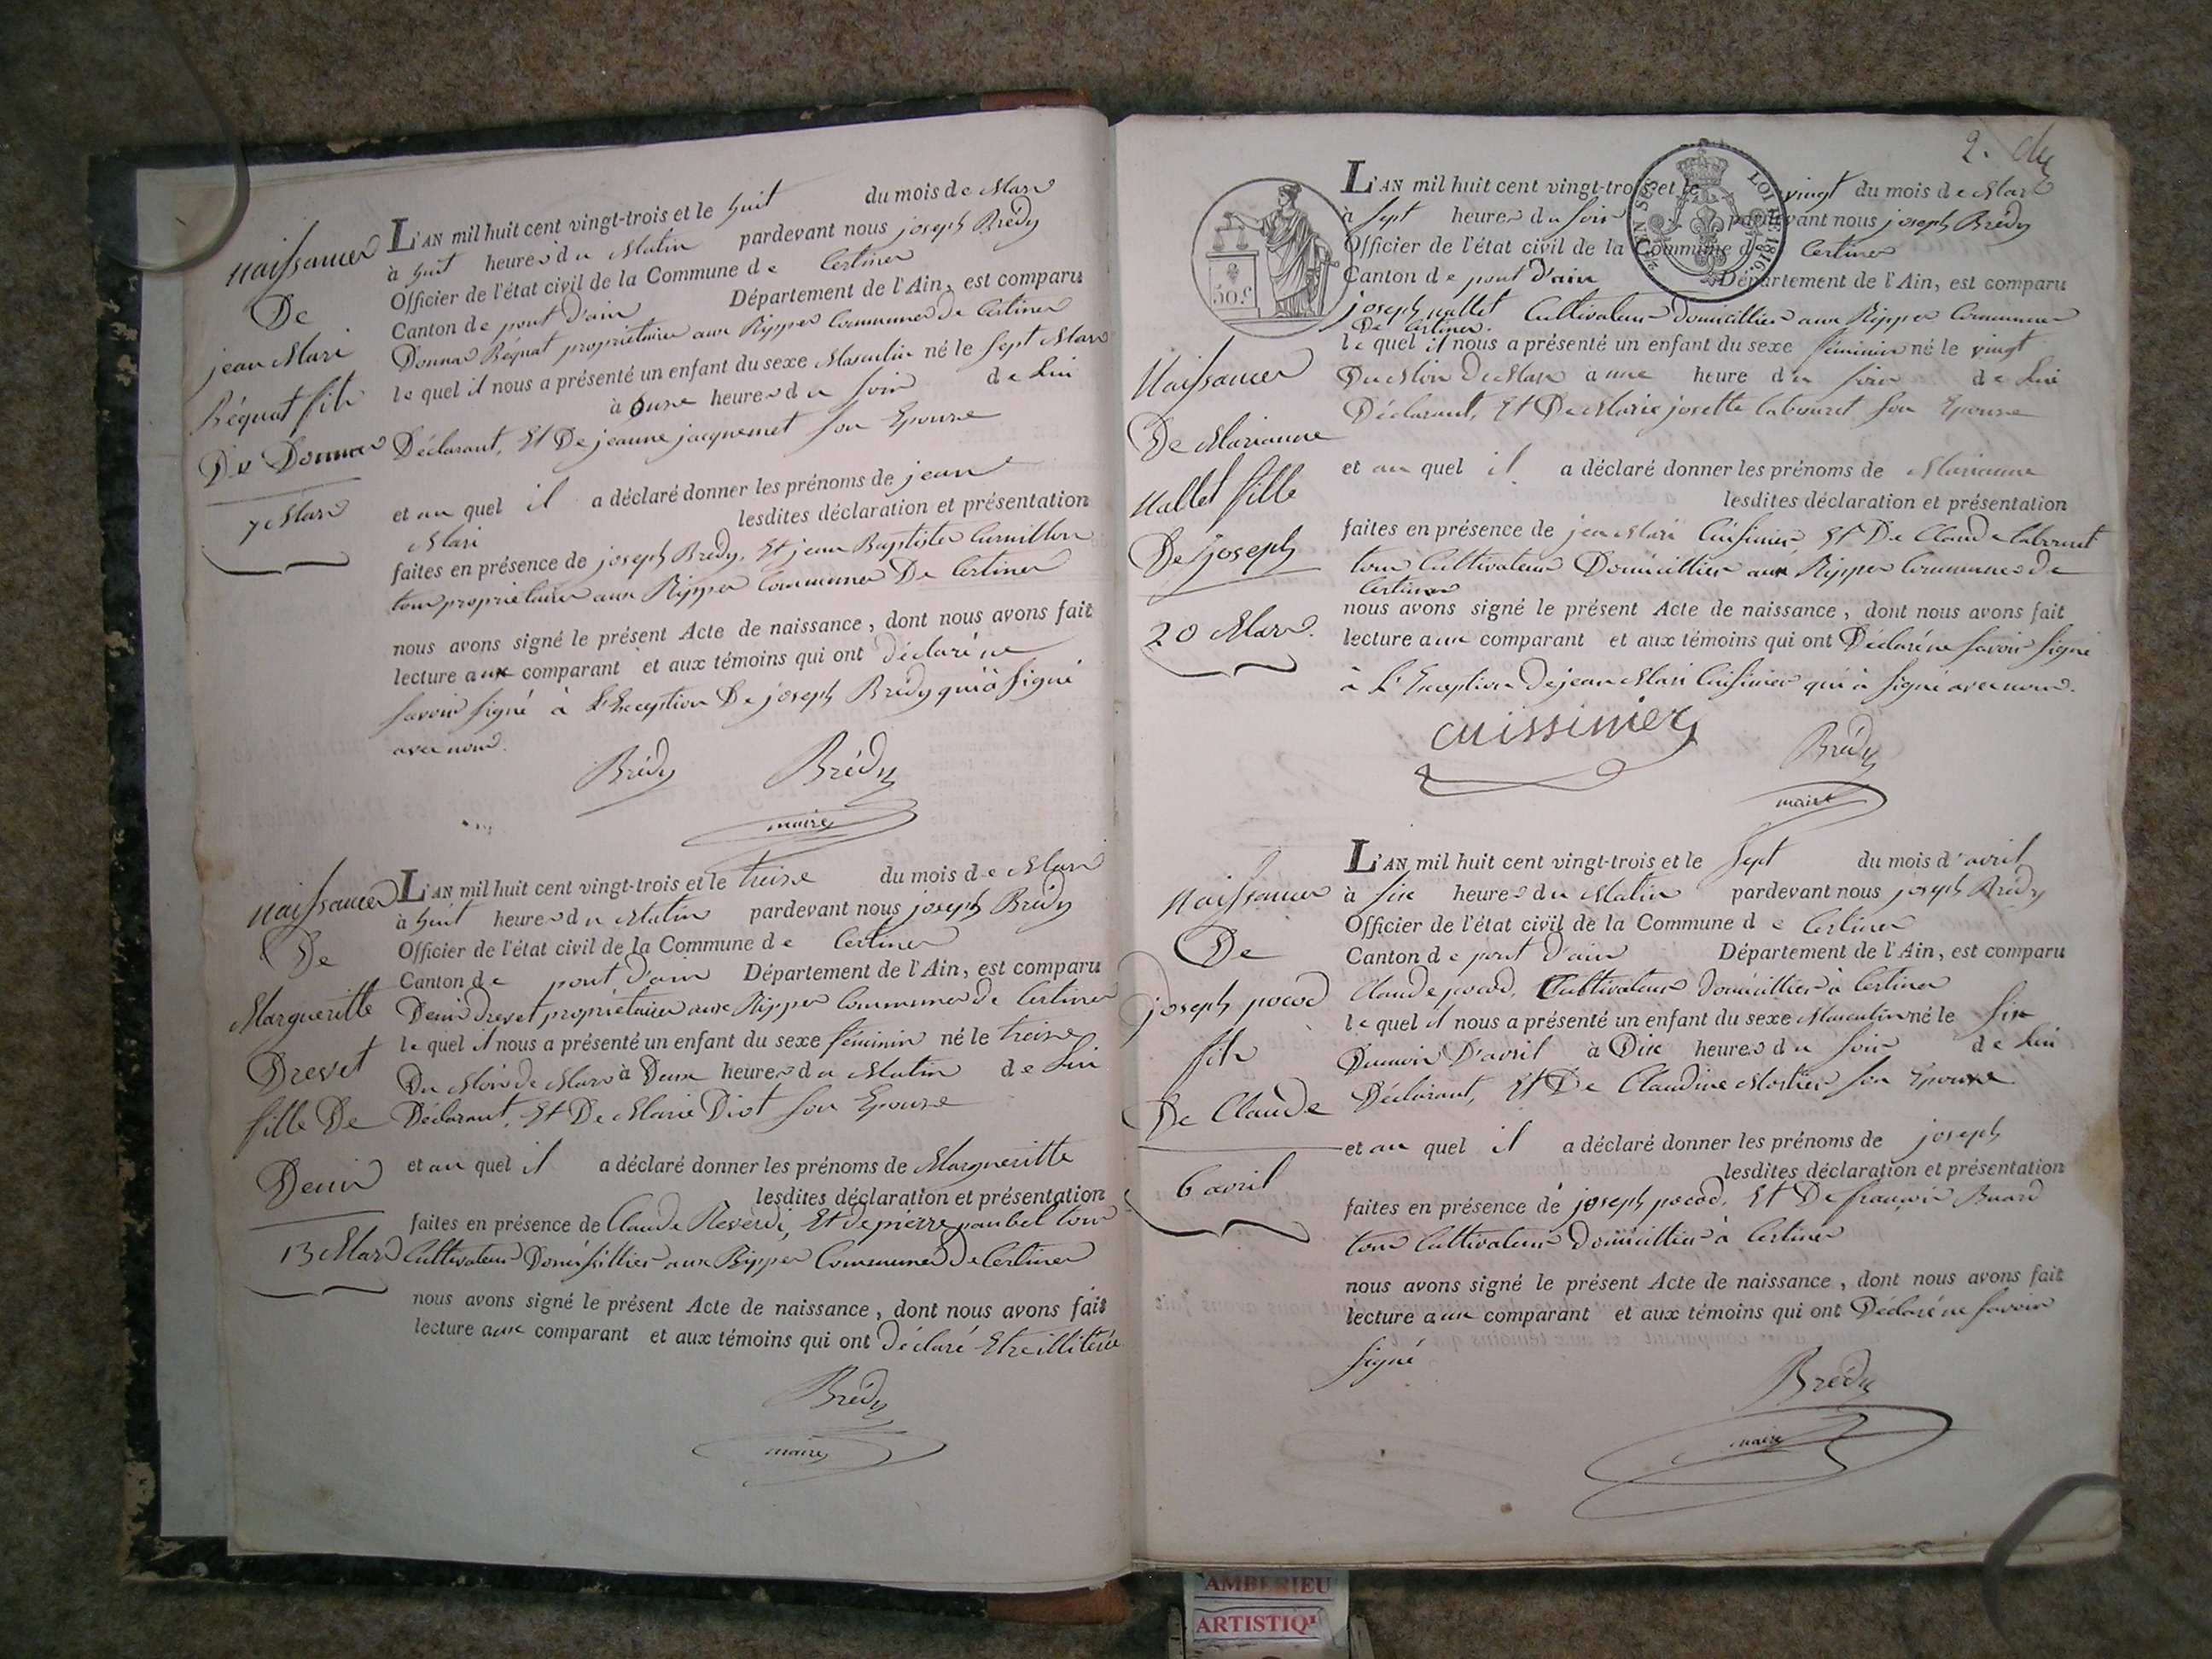 naissance
De
jean Mari
Réquat fils
De Donnat
7 Mars
L'AN mil huit cent vingt-trois et le huit du mois de Mars
à huit heures du Matin pardevant nous joseph Brédy
Officier de l'état civil de la Commune de Certines
Canton de pont d'ain Département de l'Ain, est comparu
Donnat Réquat propriétaire aux Rippes Commune de Certines
lequel il nous a présenté un enfant du sexe Masculin né le sept Mars
à onze heures du soir de Lui
Déclarant, Et De jeanne jacquemet son Epouse
et au quel il a déclaré donner les prénoms de jean
Mari lesdites déclaration et présentation
faites en présence de joseph Brédy, Et jean Baptiste
tous propriétaires aux Rippes Commune De Certines
nous avons signé le présent Acte de naissance, dont nous avons fait
lecture aux comparant et aux témoins qui ont déclaré ne
savoir signé à L'Exception De joseph Brédy qui à signé
avec nous.
Brédy Brédy
maire
naissance
De
Margueritte
Drevet
fille De
Denis
13 Mars
L'AN mil huit cent vingt-trois et le treize du mois de Mars
à huit heures du Matin pardevant nous joseph Brédy
Officier de l'état civil de la Commune de Certines
Canton de pont d'ain Département de l'Ain, est comparu
Denis Drevet propriétaire aux Rippes Commune de Certines
lequel il nous a présenté un enfant du sexe féminin né le treize
Du Mois de Mars à Deux heures du Matin de Lui
Déclarant, Et De Marie Diot son Epouse
et au quel il a déclaré donner les prénoms de Margueritte
lesdites déclaration et présentation
faites en présence de Claude Reverdi, Et de pierre paubel tous
Cultivateurs Domicilliés aux Rippes Commune De Certines
nous avons signé le présent Acte de naissance, dont nous avons fait
lecture aux comparant et aux témoins qui ont déclaré Etre illitérée
Brédy
maire
2.
50 c
TIMB. SEN. 5/6 LOI DE 1816.
Naissance
De Marianne
Mallet fille
De joseph
20 Mars.
L'AN mil huit cent vingt-trois et le vingt du mois de Mars
à sept heures du soir pardevant nous joseph Brédy
Officier de l'état civil de la Commune de Certines
Canton de pont d'ain Département de l'Ain, est comparu
joseph mallet Cultivateur domicilliés aux Rippes Commune
De Certines.
lequel il nous a présenté un enfant du sexe féminin né le vingt
Du Mois De Mars à une heure du soir de Lui
Déclarant, Et De Marie josette labouret son Epouse
et au quel il a déclaré donner les prénoms de Marianne
lesdites déclaration et présentation
faites en présence de jean Mari Cuisinier, Et De Claude labouret
tous Cultivateurs Domicilliés aux Rippes Commune de
Certines
nous avons signé le présent Acte de naissance, dont nous avons fait
lecture aux comparant et aux témoins qui ont Déclaré ne savoir signé
à L'Exception de jean Mari Cuisinier qui à signé avec nous.
cuissinier Brédy
maire
Naissance
De
joseph pocod
fils
De Claude
6 avril
L'AN mil huit cent vingt-trois et le sept du mois d'avril
à six heures du Matin pardevant nous joseph Brédy
Officier de l'état civil de la Commune de Certines
Canton de pont d'ain Département de l'Ain, est comparu
Claude pocod, Cultivateur domicilliés à Certines
lequel il nous a présenté un enfant du sexe Masculin né le six
Du mois D'avril à Dix heures du soir de Lui
Déclarant, Et De Claudine Mortier son Epouse
et au quel il a déclaré donner les prénoms de joseph
lesdites déclaration et présentation
faites en présence de joseph pocod, Et De françois Buard
tous Cultivateurs domicilliés à Certines
nous avons signé le présent Acte de naissance, dont nous avons fait
lecture aux comparant et aux témoins qui ont Déclaré ne savoir
signé
Brédy
maire
AMBERIEU
ARTISTIQ